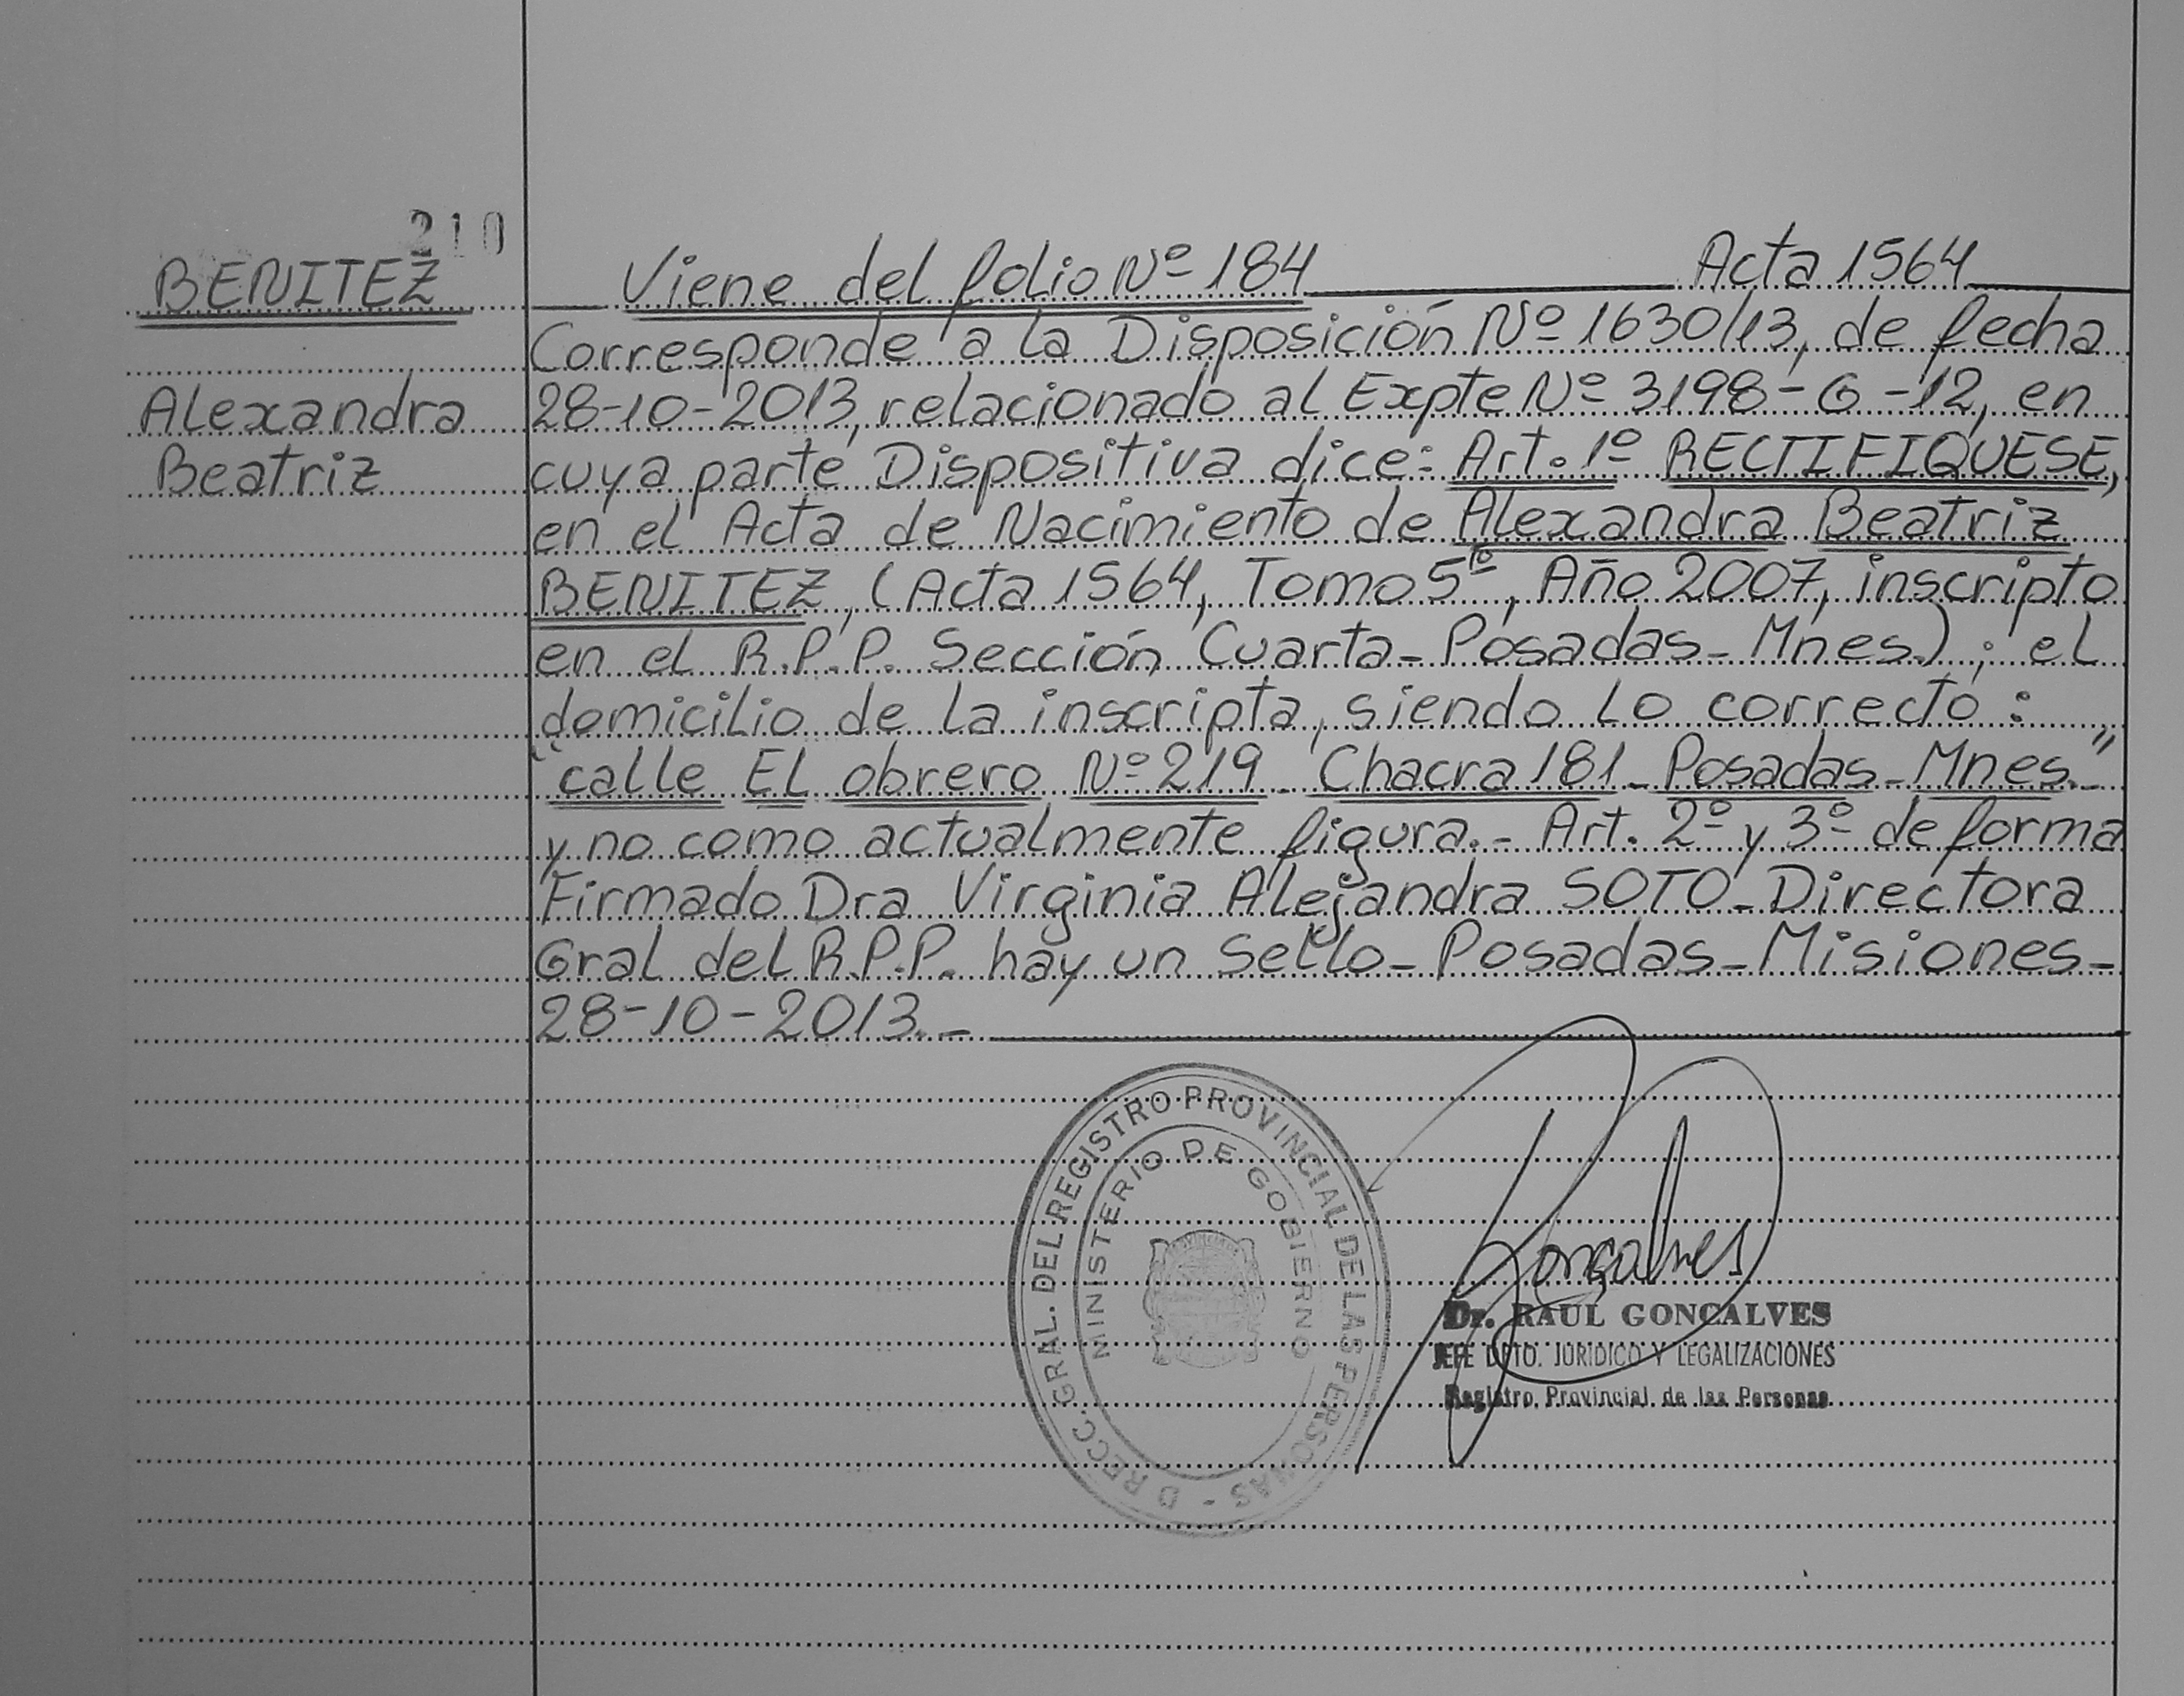 210
BENITEZ
Alexandra
Beatriz
Viene del folio Nº 184 Acta 1564
Corresponde a la Disposición Nº 1630/13, de fecha
28-10-2013, relacionado al Expte Nº 3198-G-12, en
cuya parte Dispositiva dice: Art. 1º RECTIFIQUESE,
en el Acta de Nacimiento de Alexandra Beatriz
BENITEZ, (Acta 1564, Tomo 5º, Año 2007, inscripto
en el R.P.P. Sección Cuarta-Posadas-Mnes.); el
domicilio de la inscripta, siendo lo correcto:
"calle El obrero Nº 219 - Chacra 181 - Posadas - Mnes."
y no como actualmente figura.- Art. 2º y 3º de forma
Firmado Dra Virginia Alejandra SOTO-Directora
Gral del R.P.P. hay un Sello-Posadas-Misiones-
28-10-2013.-
D RECC. GRAL. DEL REGISTRO PROVINCIAL DE LAS PERSONAS -
MINISTERIO DE GOBIERNO
Goncalves
Dr. RAUL GONCALVES
JEFE DPTO. JURIDICO Y LEGALIZACIONES
Registro Provincial de las Personas